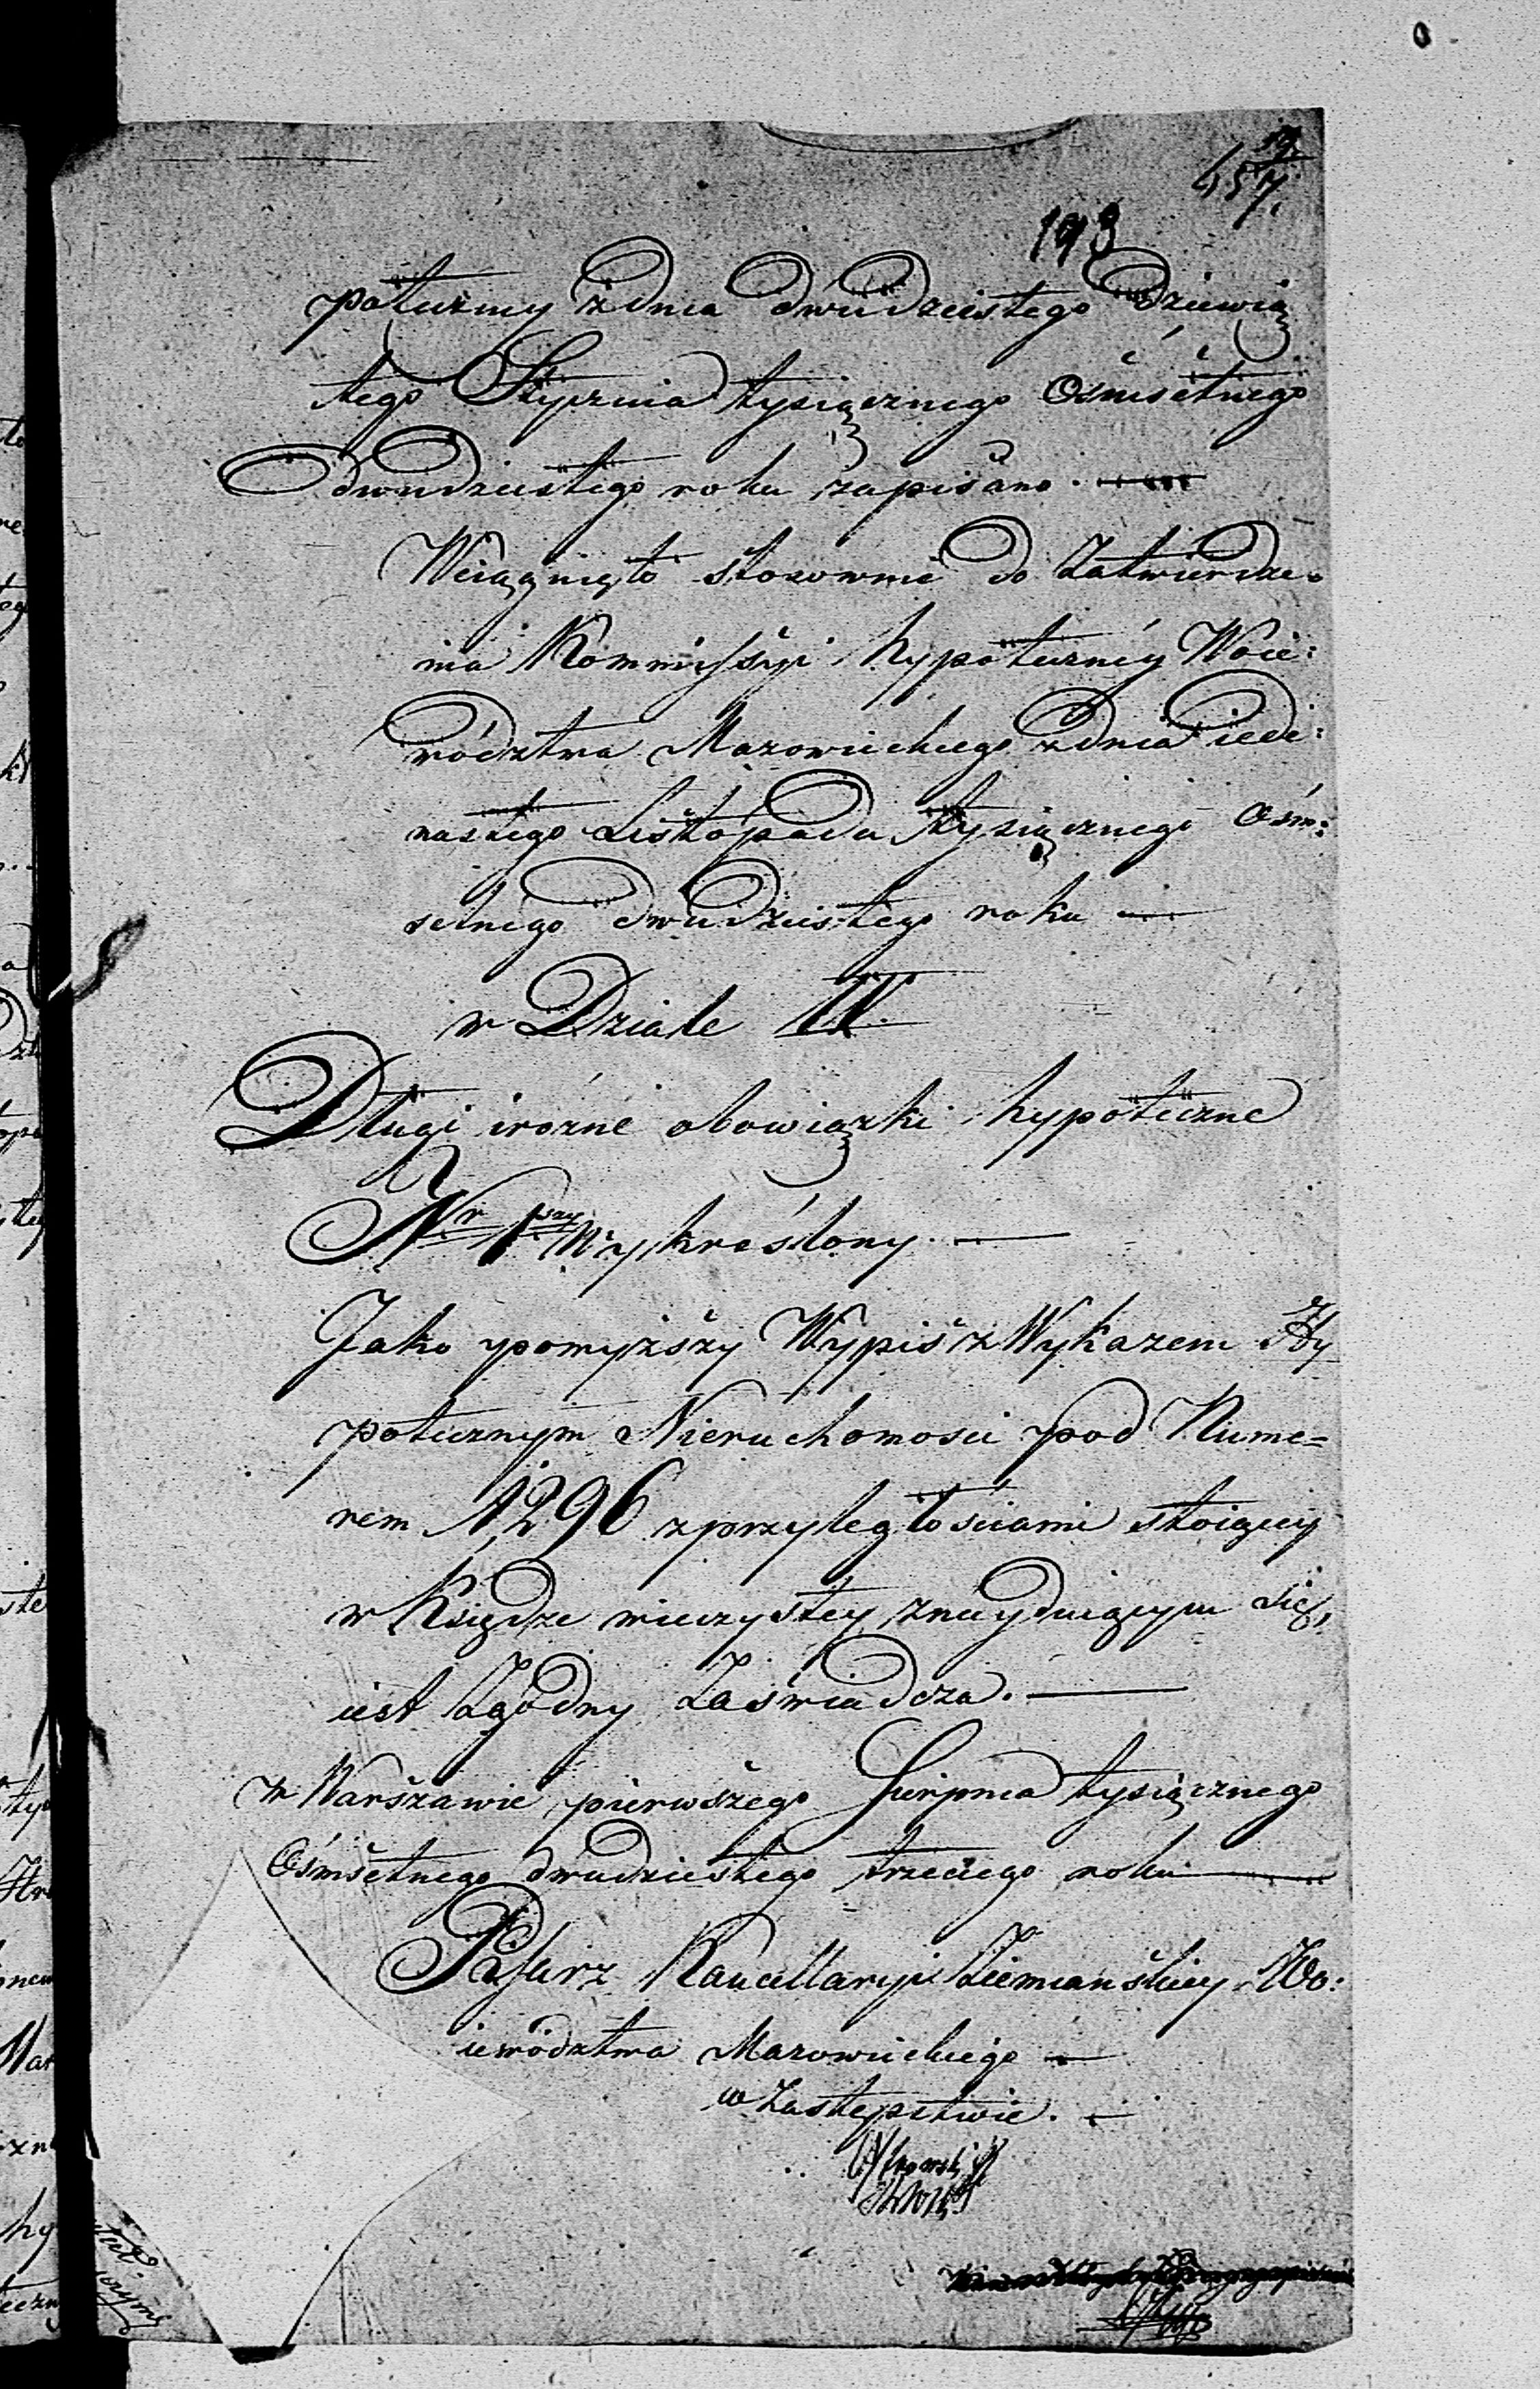 457.
193
poteczney z dnia dwudziestego dziewią
tego Stycznia tysiącznego Ośmsetnego
dwudziestego roku zapisano. —
Wciągnięto stosownie do Zatwierdze-
nia Kommissyi hypoteczney Woie:
wództwa Mazowieckiego z dnia iede:
nastego Listopada tysiącznego Ośm:
setnego dwudziestego roku —
w Dziale IV.
Długi i rózne obowiązki hypoteczne
Nr 1szy Wykreślony. —
Jako powyższy Wypis z Wykazem Hy
potecznym Nieruchomosci pod Nume=
rem 1296 z przyległościami stoiącey
w Księdze wieczystey znayduiącym się,
iest Zgodny Zaświadcza. —
w Warszawie pierwszego Sierpnia tysiącznego
Ośmsetnego dwudziestego trzeciego roku —
Pisarz Kancellaryi Ziemiańskiey Wo:
iewództwa Mazowieckiego —
w Zastępstwie. —